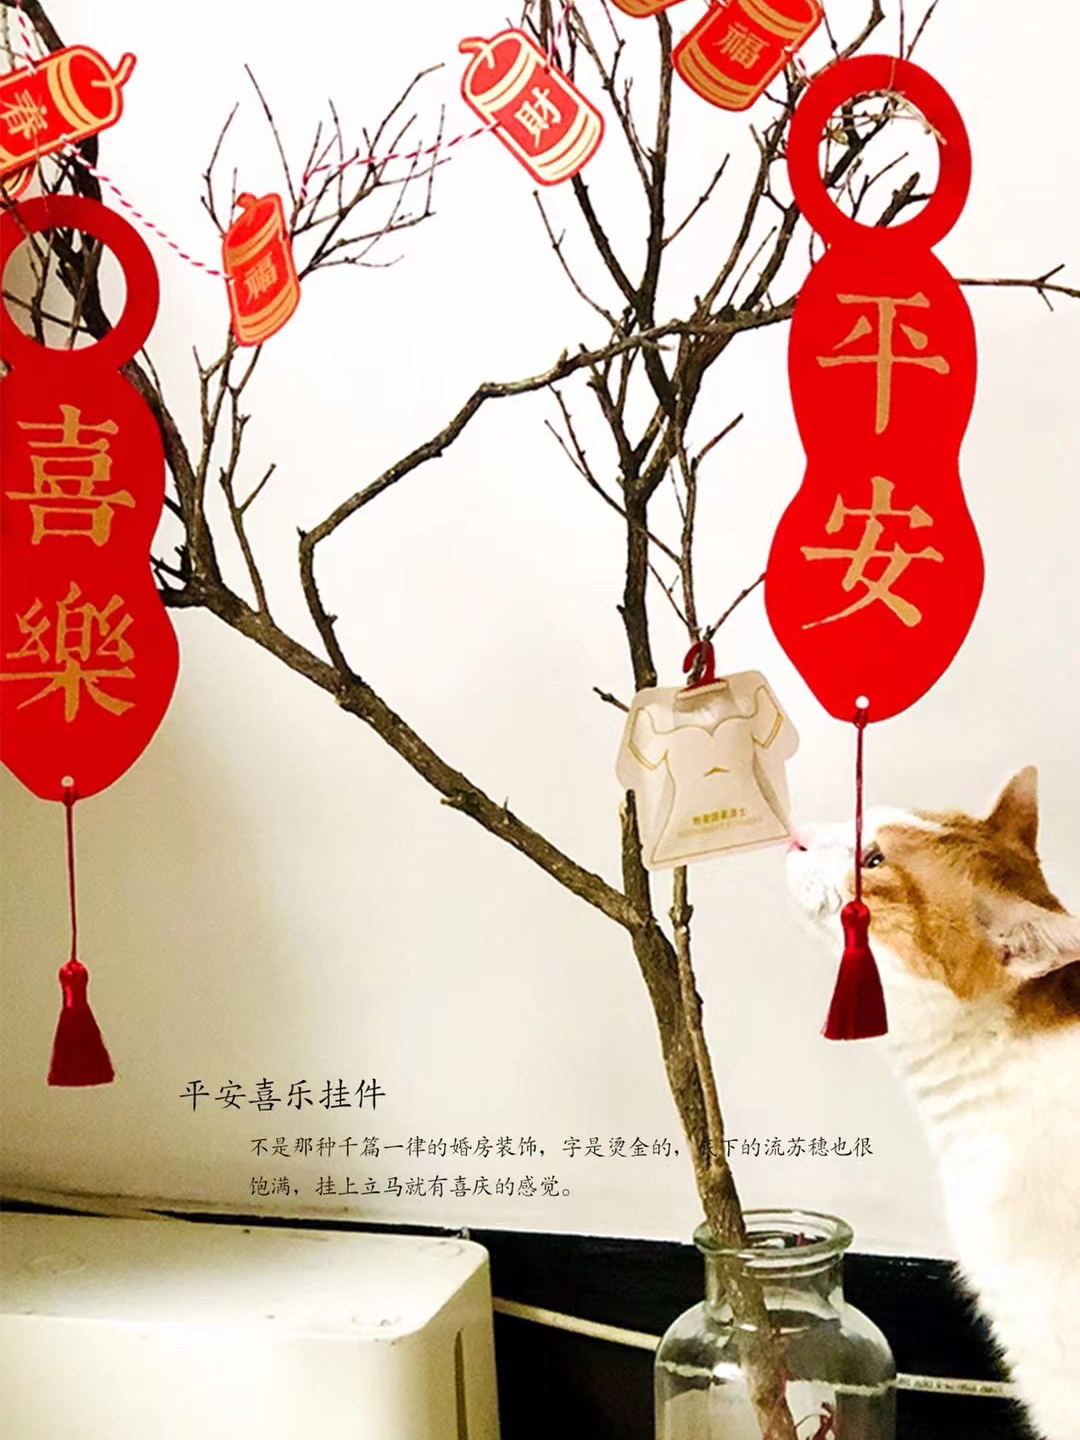 福
財
春
福
平安
喜樂
平安喜乐挂件
不是那种千篇一律的婚房装饰，字是烫金的，底下的流苏穗也很
饱满，挂上立马就有喜庆的感觉。